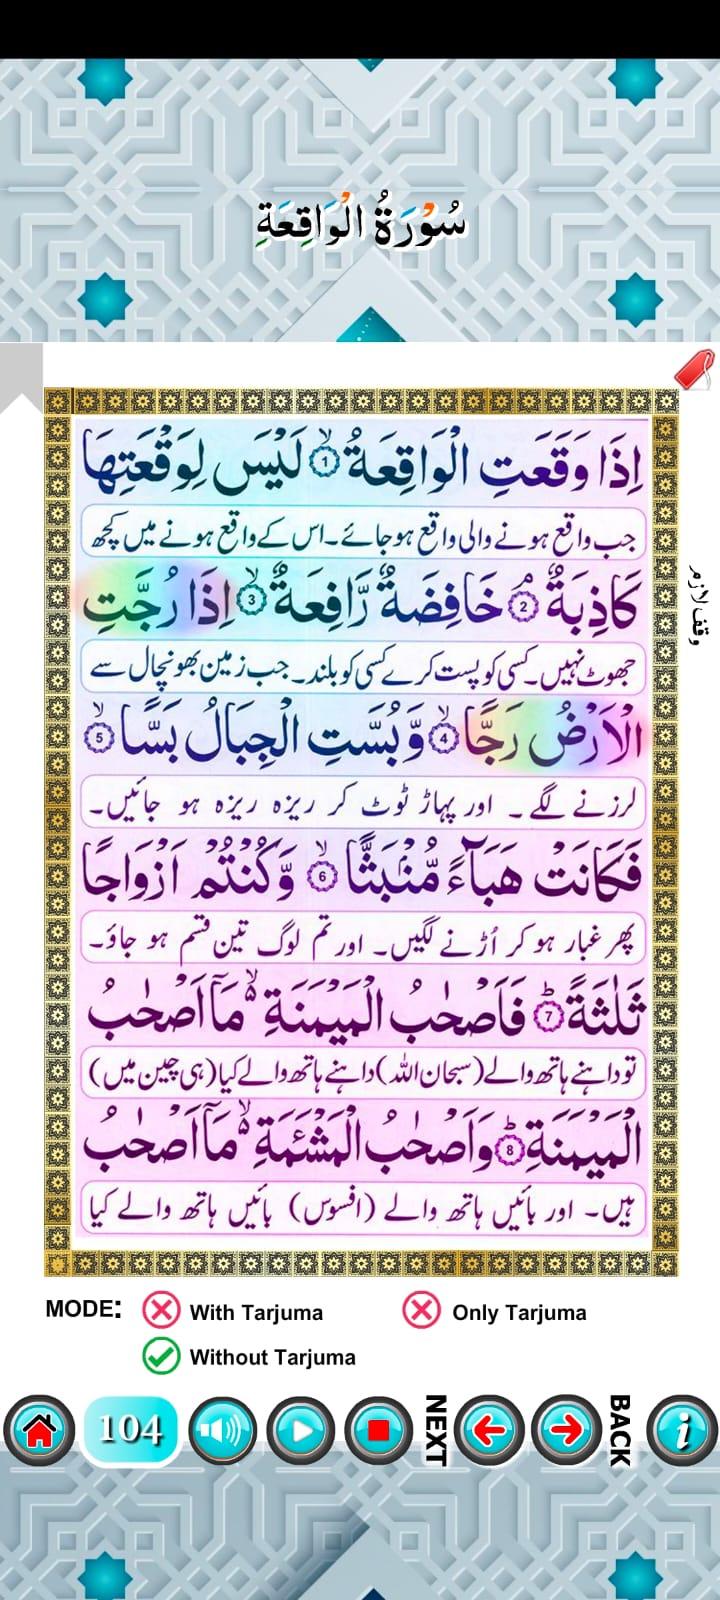 سُوْرَةُ الْوَاقِعَةِ
اِذَا وَقَعَتِ الْوَاقِعَةُ ۙ1 لَيْسَ لِوَقْعَتِهَا
جب واقع ہونے والی واقع ہو جائے۔ اس کے واقع ہونے میں کچھ
كَاذِبَةٌ ۘ2 خَافِضَةٌ رَّافِعَةٌ ۙ3 اِذَا رُجَّتِ
وقف لازم
جھوٹ نہیں۔ کسی کو پست کرے کسی کو بلند۔ جب زمین بھونچال سے
الْاَرْضُ رَجًّا ۙ4 وَّبُسَّتِ الْجِبَالُ بَسًّا ۙ5
لرزنے لگے۔ اور پہاڑ ٹوٹ کر ریزہ ریزہ ہو جائیں۔
فَكَانَتْ هَبَآءً مُّنْۢبَثًّا ۙ6 وَّكُنْتُمْ اَزْوَاجًا
پھر غبار ہو کر اُڑنے لگیں۔ اور تم لوگ تین قسم ہو جاؤ۔
ثَلٰثَةً ؕ7 فَاَصْحٰبُ الْمَيْمَنَةِ ۙ۬ مَاۤ اَصْحٰبُ
تو داہنے ہاتھ والے (سبحان اللہ) داہنے ہاتھ والے کیا (ہی چین میں)
الْمَيْمَنَةِ ؕ8 وَاَصْحٰبُ الْمَشْـَٔمَةِ ۙ۬ مَاۤ اَصْحٰبُ
ہیں۔ اور بائیں ہاتھ والے (افسوس) بائیں ہاتھ والے کیا
MODE: With Tarjuma Only Tarjuma
Without Tarjuma
104 NEXT BACK i